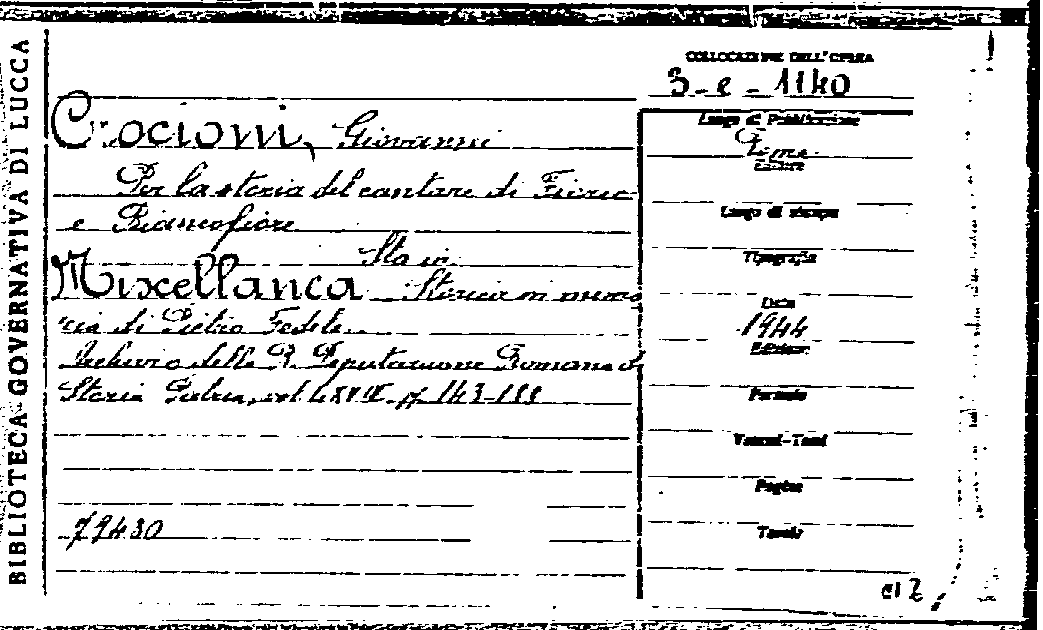 BIBLIOTECA GOVERNATIVA DI LUCCA
COLLOCAZIONE DELL'OPERA
3-e-1140
Crocioni, Giovanni
Per la storia del cantare di Fiorio
e Biancofiore
Sta in
Miscellanea Storica in memo
ria di Pietro Fedele
Archivio della R. Deputazione Romana di
Storia Patria, vol.
79430
Luogo di Pubblicazione
Roma
Editore
Luogo di stampa
Tipografia
Data
1944
Edizione
Formato
Volumi-Tomi
Pagine
Tavole